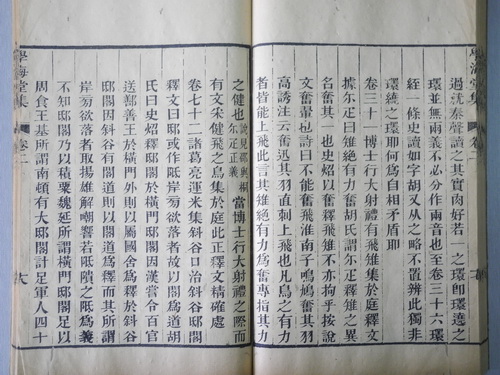 學海堂集
卷二
過沈奉聲讀之其實肉好若一之環即環遶之
環並無兩義不必分作兩音也至卷三十六環
經一條史讀如字胡又从之略不置辨此獨非
環繞之環耶何為自相矛盾耶
卷三十一博士行大射禮有飛雉集於庭釋文
據尒疋曰雉絕有力奮胡氏謂尒疋釋雉之異
名奮其一也史炤以奮釋飛雉不亦拘乎按說
文奮翬也詩曰不能奮飛淮南子鳴鳩奮其羽
高誘注云奮迅其羽直刺上飛也凡鳥之有力
者皆能高飛言其雉絕有力為奮專指其力
之健也說見邵與桐尒疋正義當博士行大射禮之際而
有文采健飛之鳥集於庭此正釋文精確處
卷七十二諸葛亮運米集斜谷口治斜谷邸閣
釋文曰邸或作阺岸旁欲落者故以閣為道胡
氏曰史炤釋邸閣因漢嘗令百官
送鄯善王於橫門外則以屬國舍為釋而釋
邸閣因斜谷有閣道則以閣道為釋而其所謂
岸旁欲落者取揚雄解嘲響若阺隤之阺為義
不知邸閣乃以積粟魏延所謂橫門邸閣足以
周食王基所謂南頓有大邸閣計足軍人四十
學海堂集
卷二